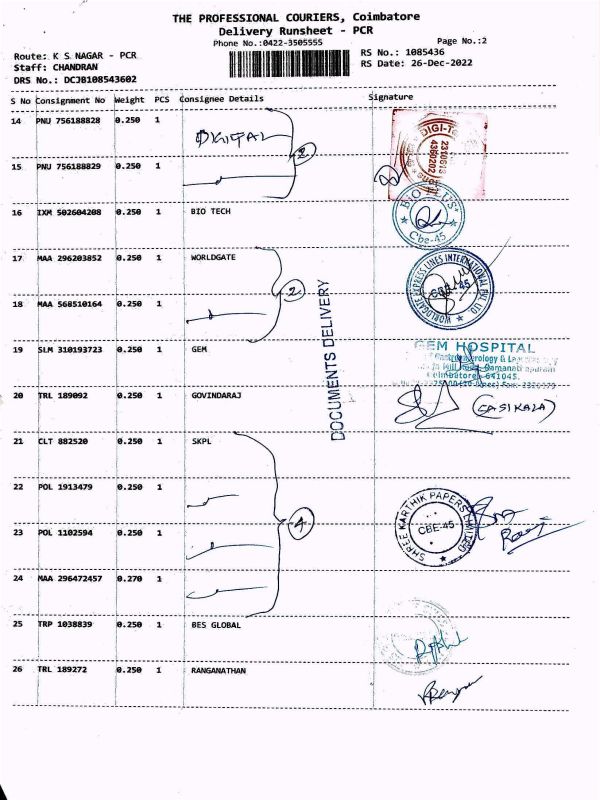 THE PROFESSIONAL COURIERS, Coimbatore
Delivery Runsheet - PCR
Phone No.:0422-3505555
Page No.:2
Route: K S NAGAR - PCR
RS No.: 1085436
Staff: CHANDRAN
RS Date: 26-Dec-2022
DRS No.: DCJB108543602
S No Consignment No Weight PCS Consignee Details Signature
14 PNU 756188828 0.250 1 DIGITAL
2
15 PNU 756188829 0.250 1
DIGI-T
2310613
4360202
16 IXM 502604208 0.250 1 BIO TECH
BIO PLUS
Cbe-45
17 MAA 296203852 0.250 1 WORLDGATE
2
WORLDGATE EXPRESS LINES INTERNATIONAL PVT. LTD
CBE-45
18 MAA 568510164 0.250 1
DOCUMENTS DELIVERY
19 SLM 310193723 0.250 1 GEM
GEM HOSPITAL
Coimbatore - 641045.
20 TRL 189092 0.250 1 GOVINDARAJ
(SASIKALA)
21 CLT 882520 0.250 1 SKPL
22 POL 1913479 0.250 1
4
SHREE KARTHIK PAPERS LIMITED
CBE-45
23 POL 1102594 0.250 1
24 MAA 296472457 0.270 1
25 TRP 1038839 0.250 1 BES GLOBAL
26 TRL 189272 0.250 1 RANGANATHAN